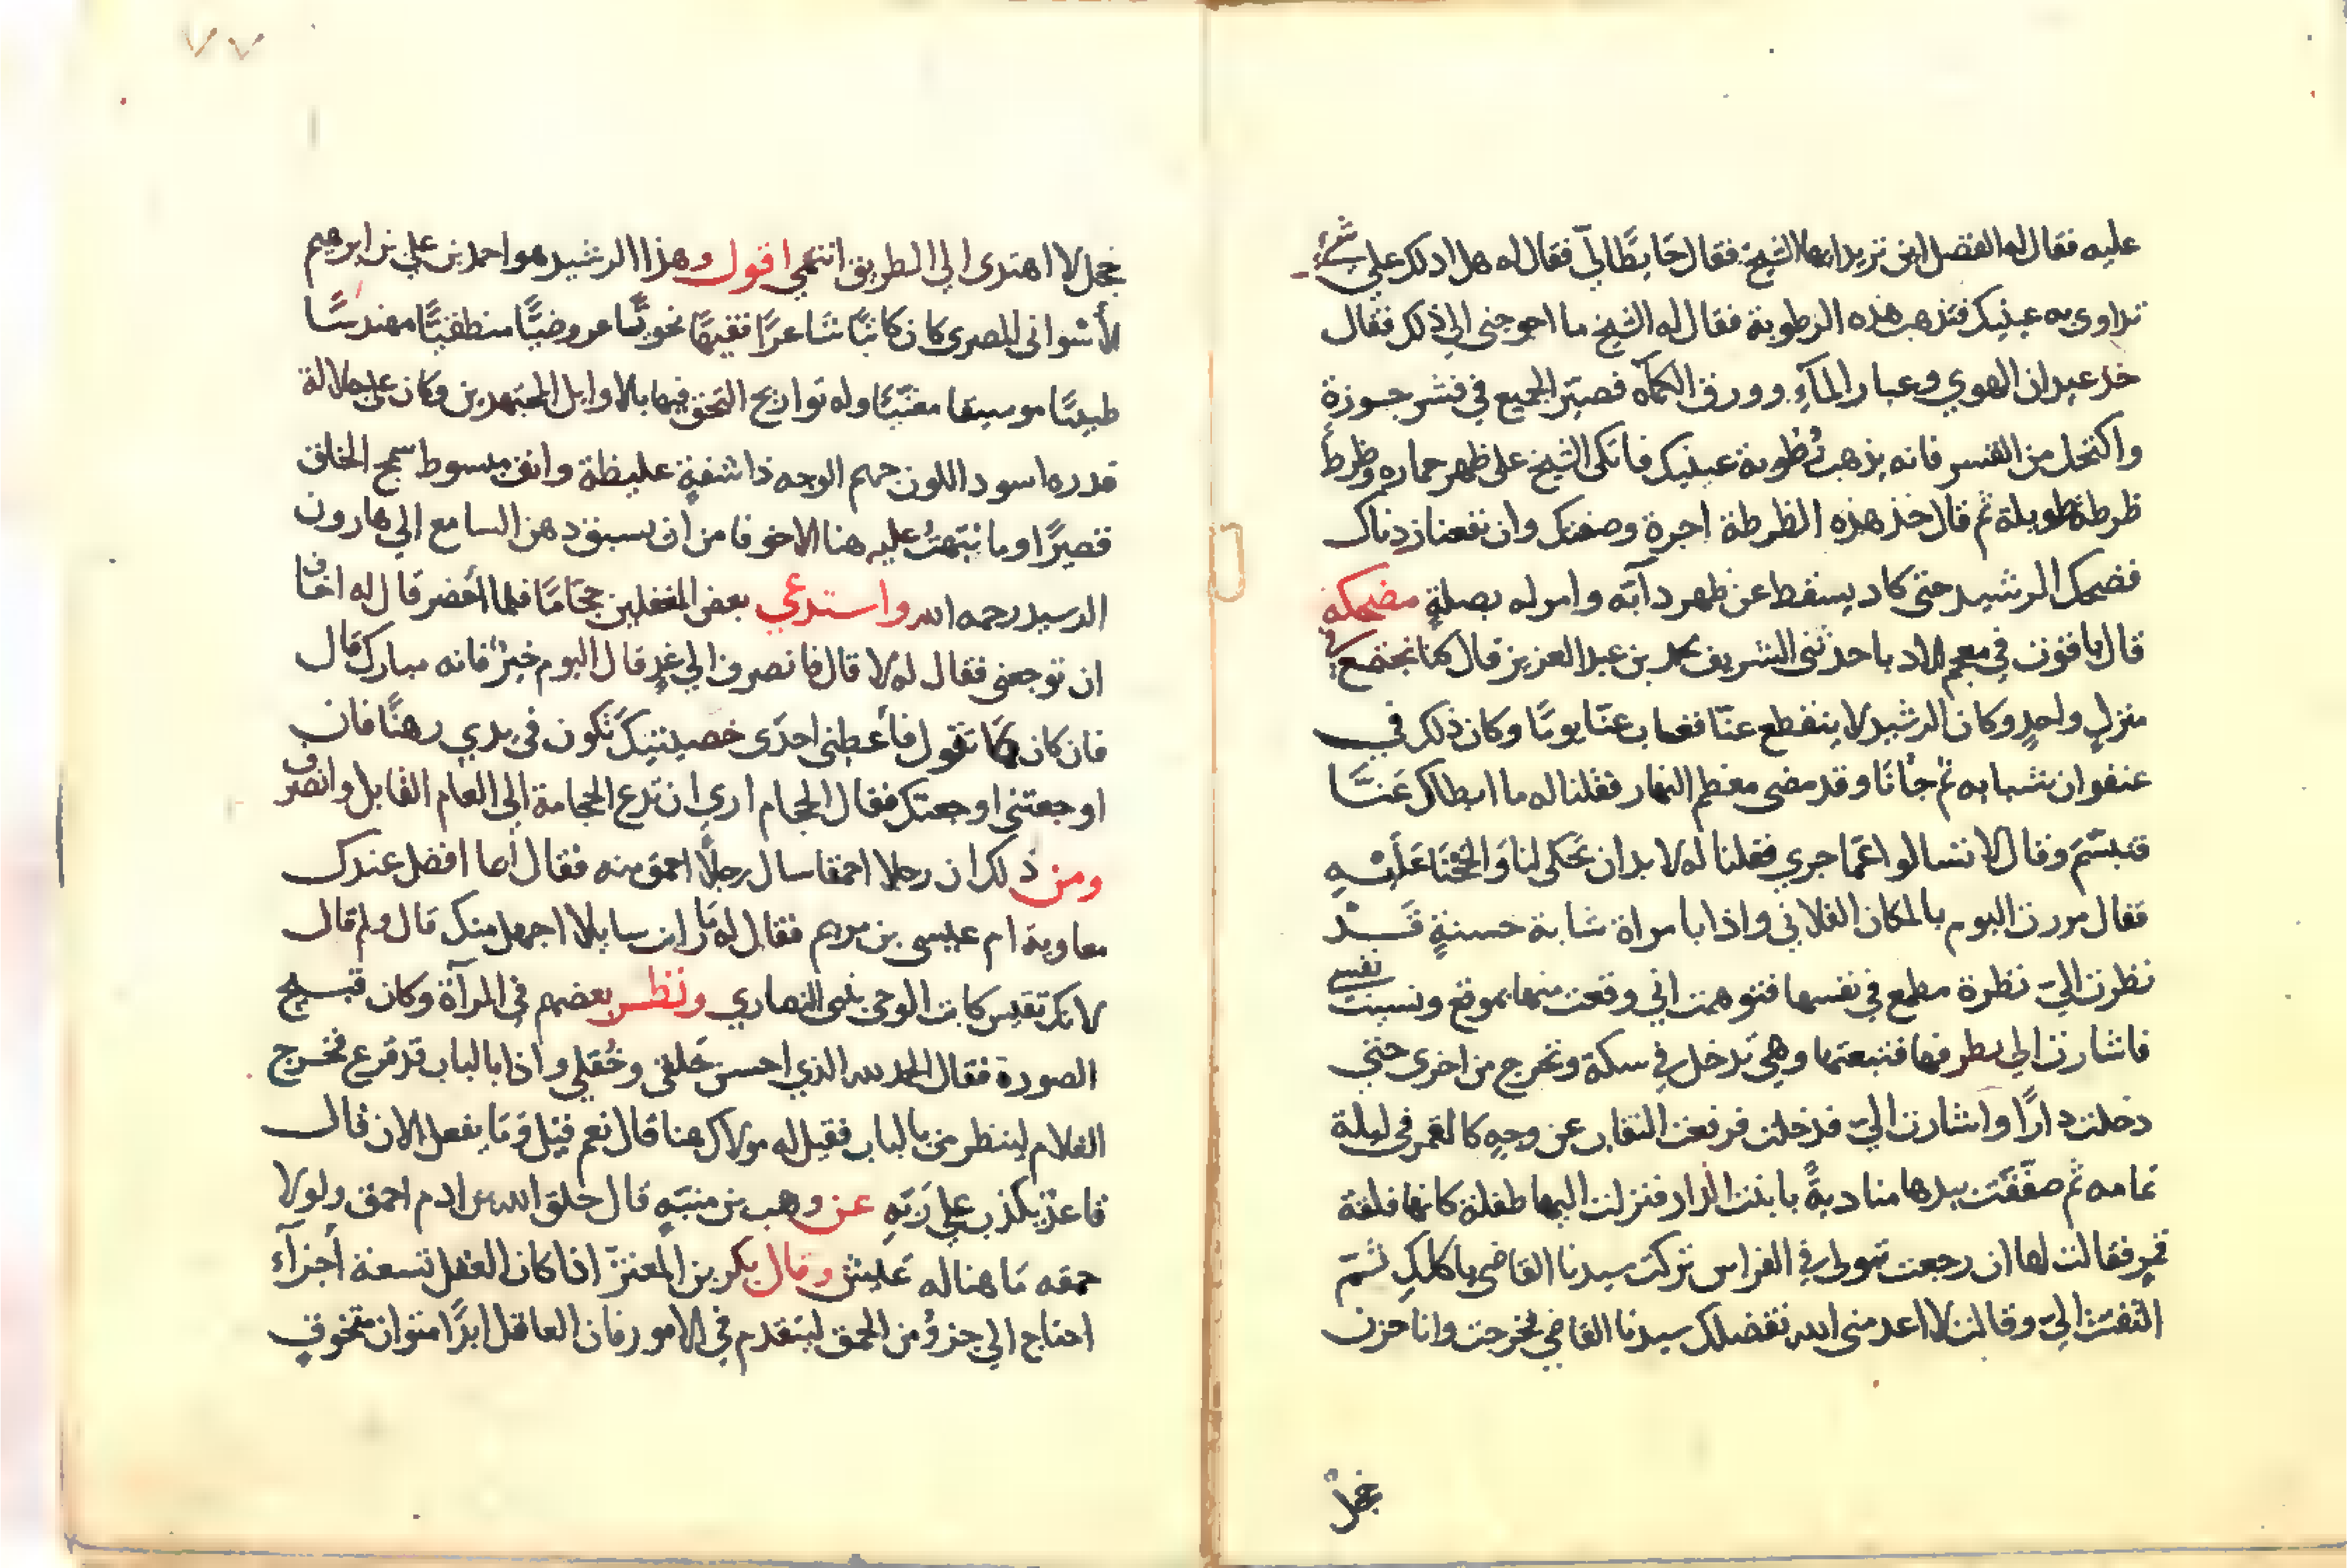 عليه فقال له الفضل اين تريد ايها الشيخ فقال حايطا لي فقال له هل ادلك على شيء
تداوي به عينيك فتذهب هذه الرطوبة فقال له الشيخ ما احوجني الي ذلك فقال
خذ عيدان الهوي وغبار المآء وورق الكمآه فصيّر الجميع في قشر جوزة
واكتحل من القشر فانه يذهب رُطوبة عينيك فاتكى الشيخ على ظهر حماره وظرط
ظرطة طويلة ثم قال خذ هذه الظرطة اجرة وصفتك وان نفعنا زدناك
فضحك الرشيد حتى كاد يسقط عن ظهر دآبّه وامر له بصلةٍ مضحكه
قال ياقوت في معجم الادبا حدثني الشريف محمد بن عبد العزيز قال كنا نجتمع في
منزلٍ واحدٍ وكان الرشيد لا ينقطع عنّا فغاب عنّا يومًا وكان ذلك في
عنفوان شبابه ثم جآنا وقد مضى معظم النهار فقلنا له ما ابطاك عَنَّا
فتبسّم وقال لا تسالوا عمّا جري فقلنا له لا بد ان تحكى لنا والححْنا عَليْهِ
فقال مررت اليوم بالمكان الفلاني واذا بامراة شابة حسنةٍ قَد
نظرت اليّ نظرة مطمع في نفسها فتوهمت اني وقعت منها بموقع ونسيت نفسي
فاشارت الي بطرفها فتبعتها وهي تدخل في سكة وتخرج من اخرى حتي
دخلت دارًا واشارت اليّ فدخلت فرفعت النقاب عن وجهٍ كالقمر في ليلة
تمامه ثم صفّقت بيدها مناديةً يا بنت الدار فنزلت اليها طفلة كانها فلقة
قمرٍ فقالت لها ان رجعت تبولي في الفراس تركت سيدنا القاضي ياكلكِ ثم
التفتت اليّ وقالت لا اعدمني الله تفضلك سيدنا القاضي فخرجت وانا حزن
خجل
٧٧
خجل لا اهتدى الي الطريق انتهي اقول وهذا الرشيد هو احمد بن علي بن ابرهيم
الأسواني المصري كان كاتبًا شاعرًا فقيهًا نحويًّا عروضيًّا منطقيًّا مهندسًا
طبيبًا موسيقا مغنّيًا وله تواريخ التحق فيها بالاوايل المجتهدين وكان على جلالة
قدره اسود اللون جهم الوجه ذا شفةٍ غليظة وانف مبسوط سمج الخلق
قصيرًا وما نبّهتُ عليه هنا الا خوفا من ان يسبق ذهن السامع الي هارون
الرسيد رحمه الله واستدعي بعض المغفلين حجّامًا فلما أحضر قال له اخاف
ان توجعني فقال له لا قال فانصرف الي غدٍ قال اليوم خيرٌ فانه مبارك قال
فان كان كما تقول فأعطني احدَى خصيتيك تكون في يدي رهنًا فان
اوجعتني اوجعتك فقال الحجام اري ان تدع الحجامة الي العام القابل وانصرف
ومن ذلك ان رجلا احمقا سال رجلاً احمق منه فقال أيما افضل عندك
معاوية ام عيسى بن مريم فقال له ما رايت سايلا اجهل منك قال ولم قال
لانك تقيس كاتب الوحي بنبي النصاري ونظر بعضهم في المرآة وكان قبيح
الصورة فقال الحمد لله الذي احسن خَلقي وخُلقي واذا بالباب قد قرع فخرج
الغلام لينظر من بالباب فقيل له مولاك هنا قال نعم قيل وما يفعل الان قال
قاعدٌ يكذب علي رَبّهِ عن وهب بن منبّهٍ قال خلق الله ادم احمق ولولا
حمقه ما هنا له عَيش وقال بكر بن المعتزّ اذا كان العقل تسعة أجزآء
احتاج الي جزؤٍ من الحمق ليتقدم في الامور فان العاقل ابدًا متوانٍ متخوفٍ